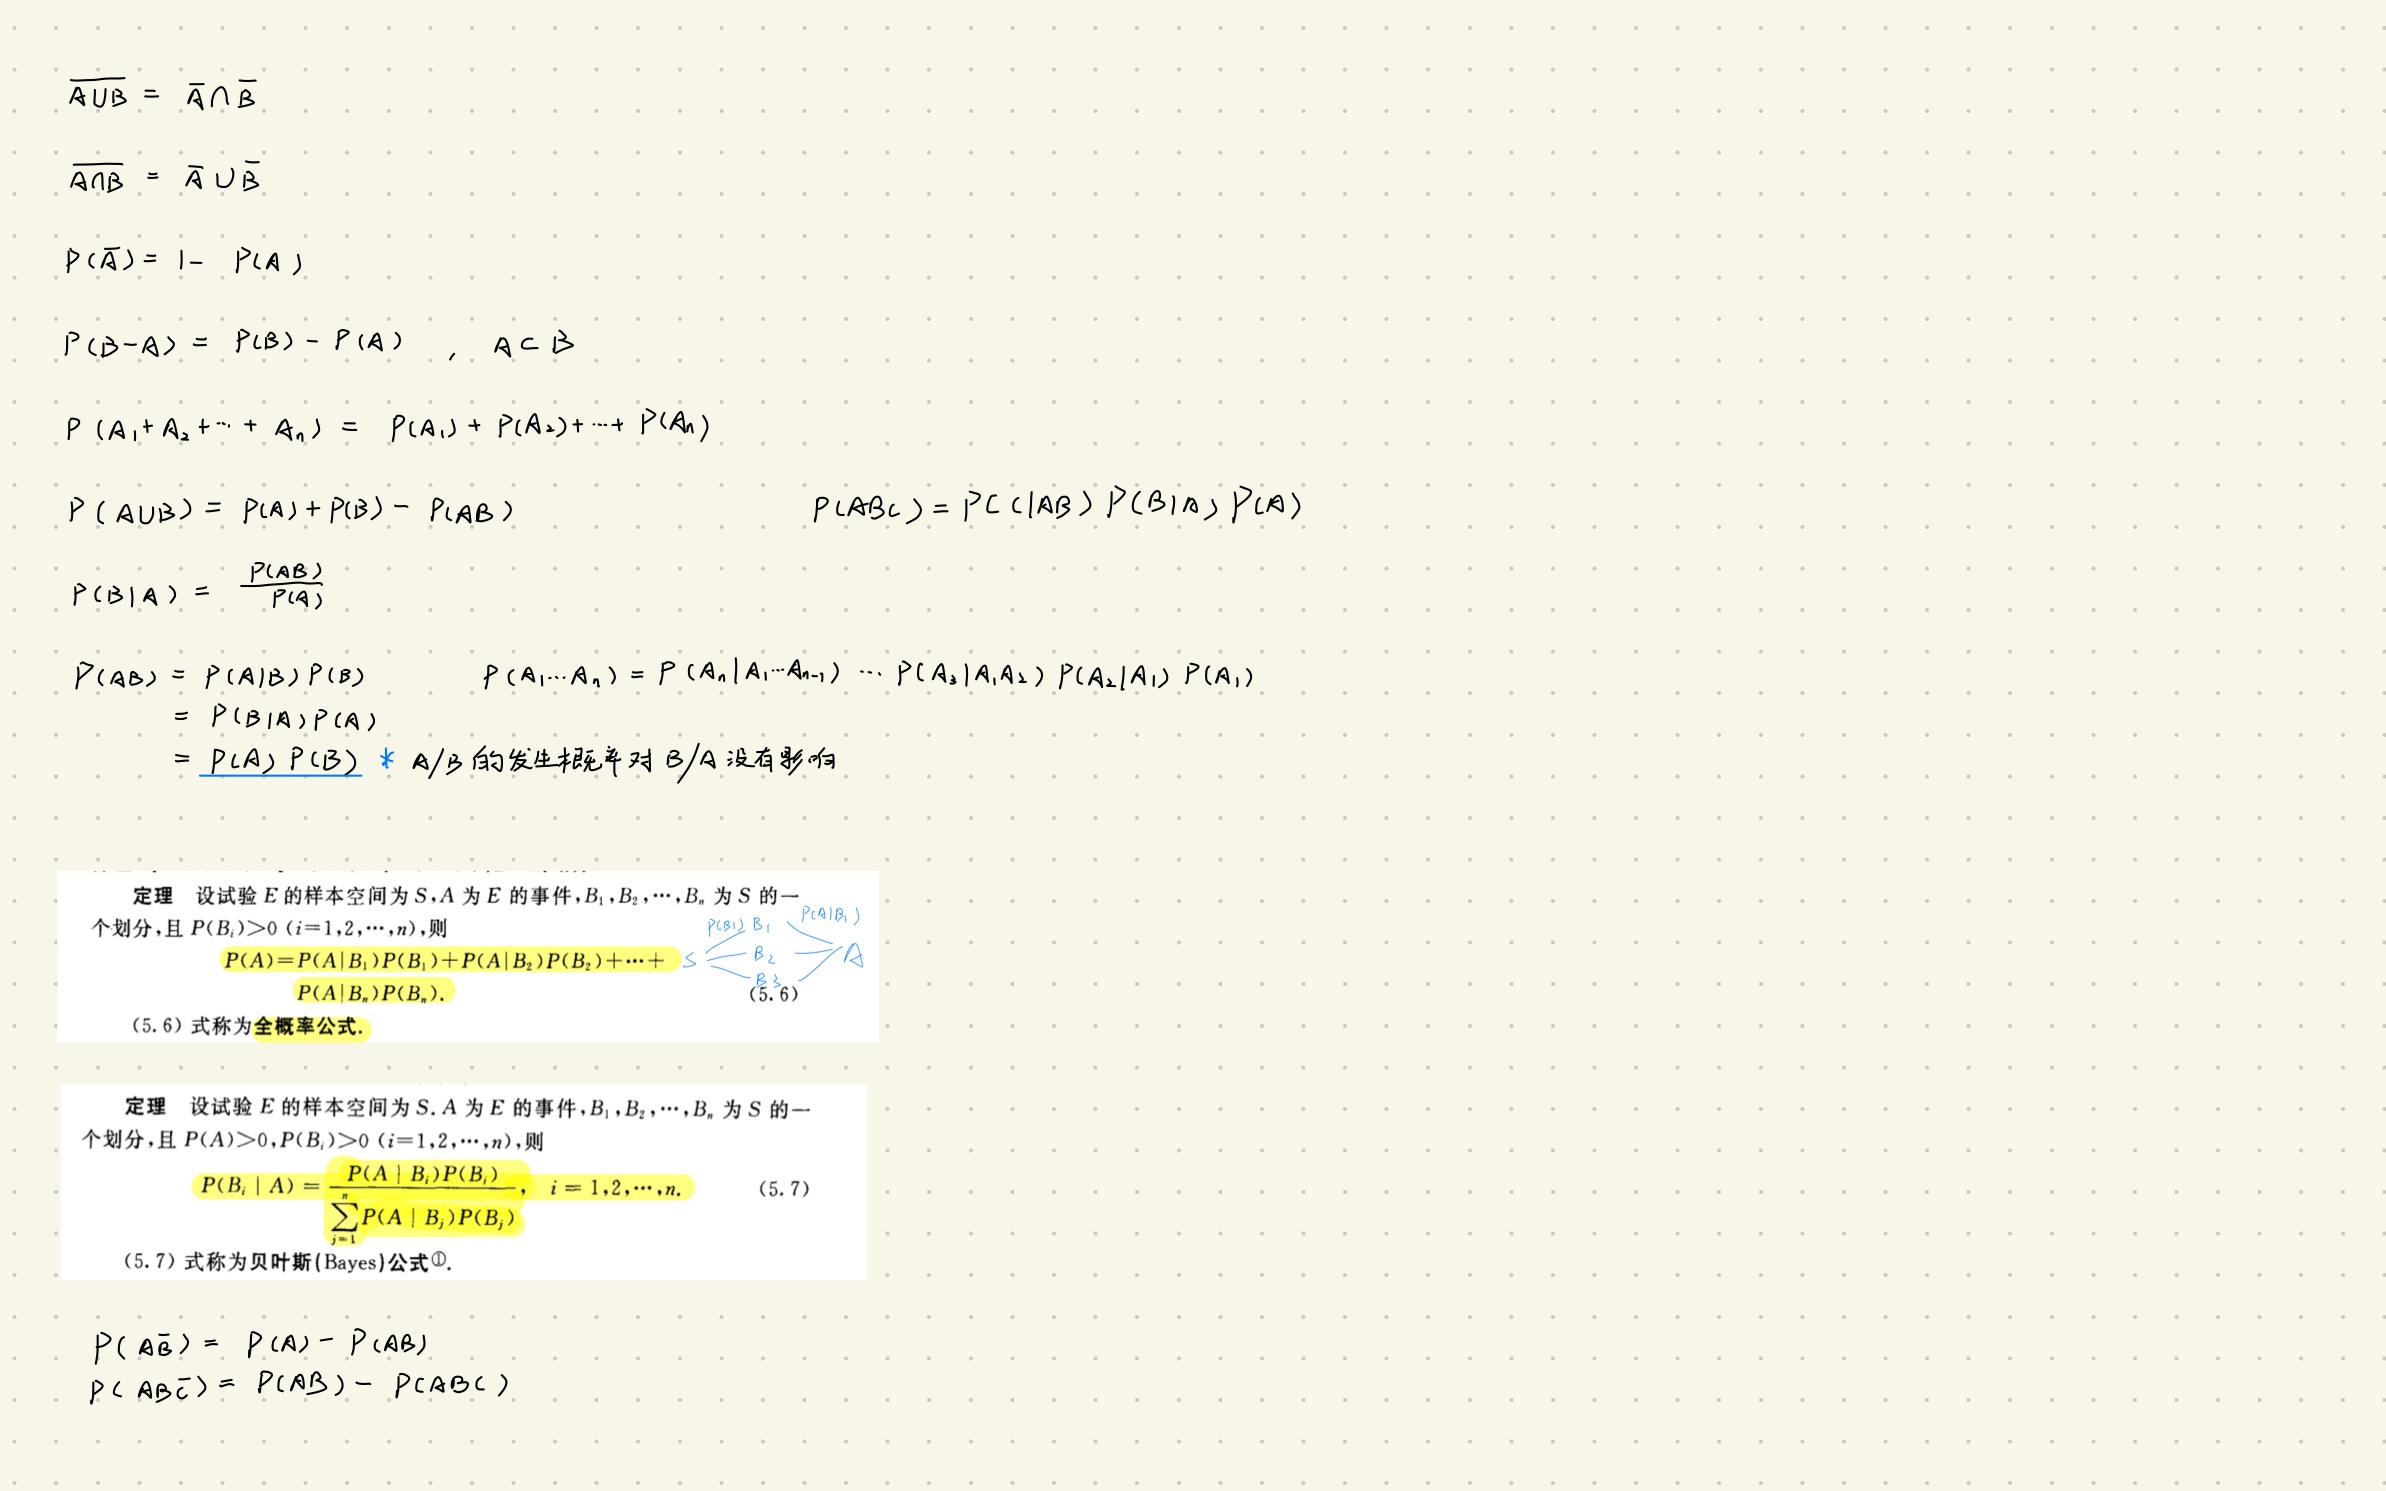 $\overline{A \cup B} = \bar{A} \cap \bar{B}$
$\overline{A \cap B} = \bar{A} \cup \bar{B}$
$P(\bar{A}) = 1 - P(A)$
$P(B-A) = P(B) - P(A)$ , $A \subset B$
$P(A_1 + A_2 + \cdots + A_n) = P(A_1) + P(A_2) + \cdots + P(A_n)$
$P(A \cup B) = P(A) + P(B) - P(AB)$ $P(ABC) = P(C|AB) P(B|A) P(A)$
$P(B|A) = \frac{P(AB)}{P(A)}$
$P(AB) = P(A|B) P(B)$ $P(A_1 \cdots A_n) = P(A_n | A_1 \cdots A_{n-1}) \cdots P(A_3 | A_1 A_2) P(A_2 | A_1) P(A_1)$
$= P(B|A) P(A)$
$= P(A) P(B)$ * A/B 的发生概率对 B/A 没有影响
定理 设试验 E 的样本空间为 S,A 为 E 的事件,$B_1, B_2, \cdots, B_n$ 为 S 的一
个划分,且 $P(B_i) > 0$ $(i=1,2,\cdots,n)$,则
P(B1) B₁ P(A|B₁)
$P(A) = P(A|B_1)P(B_1) + P(A|B_2)P(B_2) + \cdots +$
S B₂ A
B₃
$P(A|B_n)P(B_n)$. (5.6)
(5.6) 式称为全概率公式.
定理 设试验 E 的样本空间为 S. A 为 E 的事件,$B_1, B_2, \cdots, B_n$ 为 S 的一
个划分,且 $P(A) > 0, P(B_i) > 0$ $(i=1,2,\cdots,n)$,则
$P(B_i | A) = \frac{P(A | B_i)P(B_i)}{\sum_{j=1}^{n} P(A | B_j)P(B_j)}, \quad i = 1,2,\cdots,n.$ (5.7)
(5.7) 式称为贝叶斯(Bayes)公式①.
$P(A\bar{B}) = P(A) - P(AB)$
$P(AB\bar{C}) = P(AB) - P(ABC)$